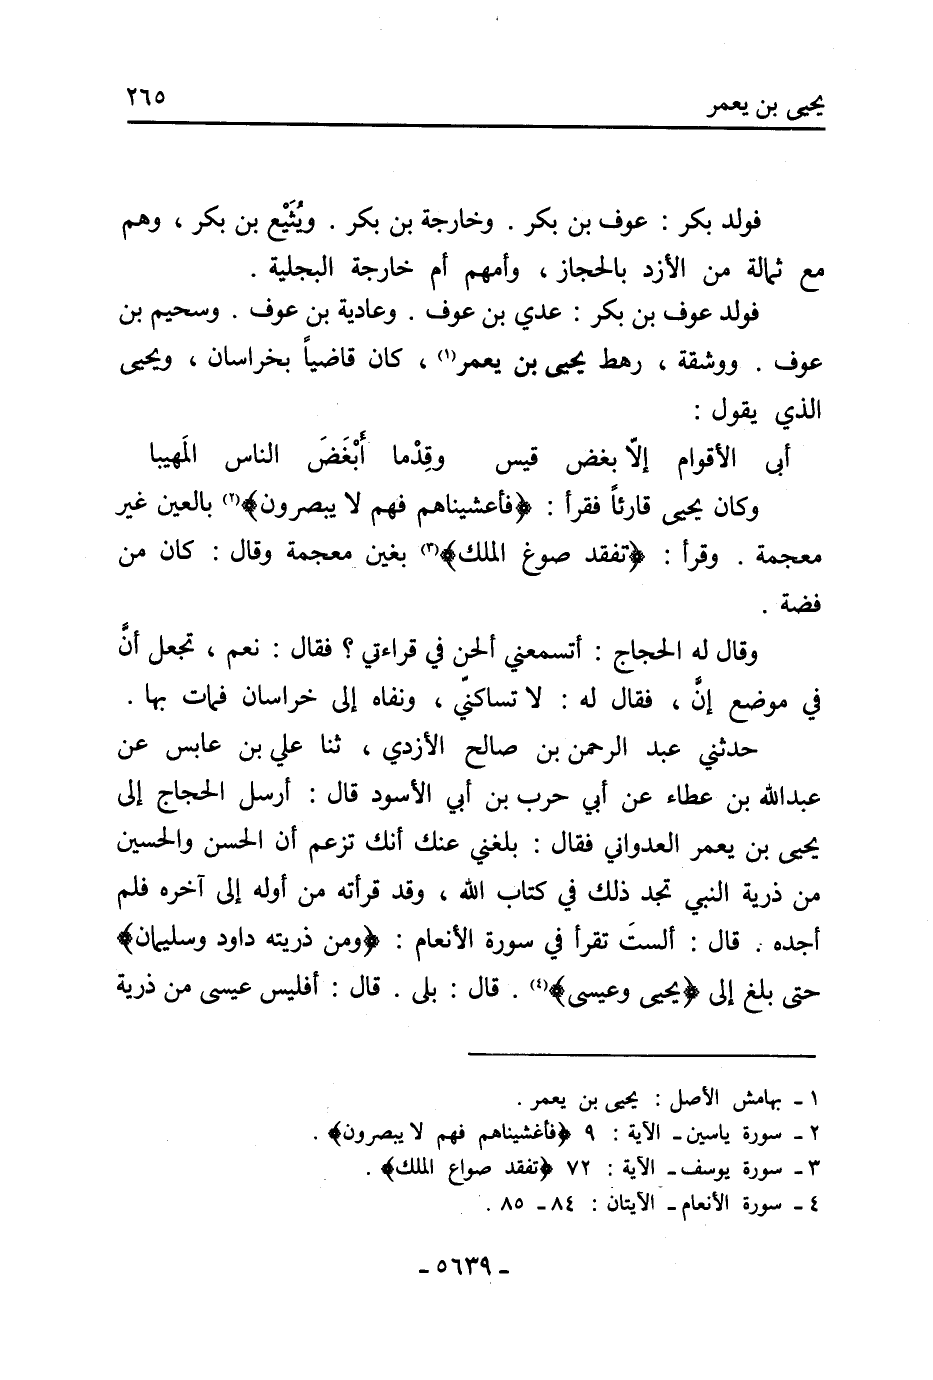 يحيى بن يعمر ٢٦٥
فولد بكر : عوف بن بكر . وخارجة بن بكر . ويُثَيْع بن بكر ، وهم
مع ثمالة من الأزد بالحجاز ، وأمهم أم خارجة البجلية .
فولد عوف بن بكر : عدي بن عوف . وعادية بن عوف . وسحيم بن
عوف . ووشقة ، رهط يحيى بن يعمر(١) ، كان قاضياً بخراسان ، ويحيى
الذي يقول :
أبى الأقوام إلاّ بغض قيس وقِدْما أَبْغَضَ الناس المَهيبا
وكان يحيى قارئاً فقرأ : ﴿فأعشيناهم فهم لا يبصرون﴾(٢) بالعين غير
معجمة . وقرأ : ﴿تفقد صوغ الملك﴾(٣) بغين معجمة وقال : كان من
فضة .
وقال له الحجاج : أتسمعني ألحن في قراءتي ؟ فقال : نعم ، تجعل أنَّ
في موضع إنَّ ، فقال له : لا تساكنيّ ، ونفاه إلى خراسان فمات بها .
حدثني عبد الرحمن بن صالح الأزدي ، ثنا علي بن عابس عن
عبدالله بن عطاء عن أبي حرب بن أبي الأسود قال : أرسل الحجاج إلى
يحيى بن يعمر العدواني فقال : بلغني عنك أنك تزعم أن الحسن والحسين
من ذرية النبي تجد ذلك في كتاب الله ، وقد قرأته من أوله إلى آخره فلم
أجده . قال : ألستَ تقرأ في سورة الأنعام : ﴿ومن ذريته داود وسليمان﴾
حتى بلغ إلى ﴿يحيى وعيسى﴾(٤) . قال : بلى . قال : أفليس عيسى من ذرية
١ ـ بهامش الأصل : يحيى بن يعمر .
٢ ـ سورة ياسين ـ الآية : ٩ ﴿فأغشيناهم فهم لا يبصرون﴾ .
٣ ـ سورة يوسف ـ الآية : ٧٢ ﴿تفقد صواع الملك﴾ .
٤ ـ سورة الأنعام ـ الآيتان : ٨٤ ـ ٨٥ .
ـ ٥٦٣٩ ـ